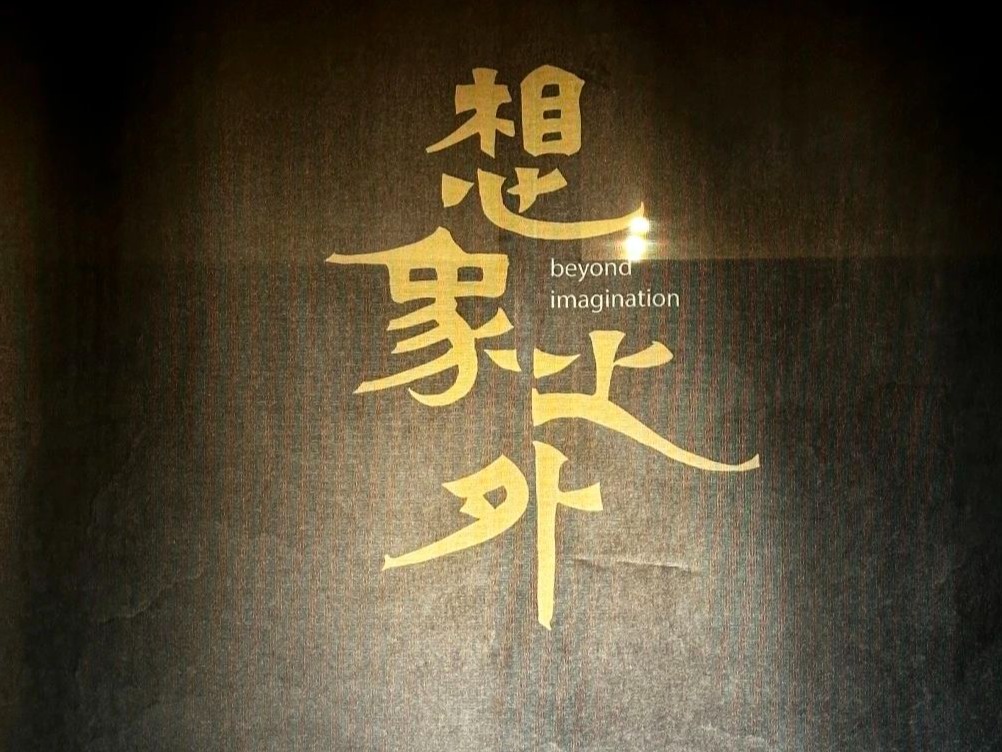 想象之外
beyond
imagination